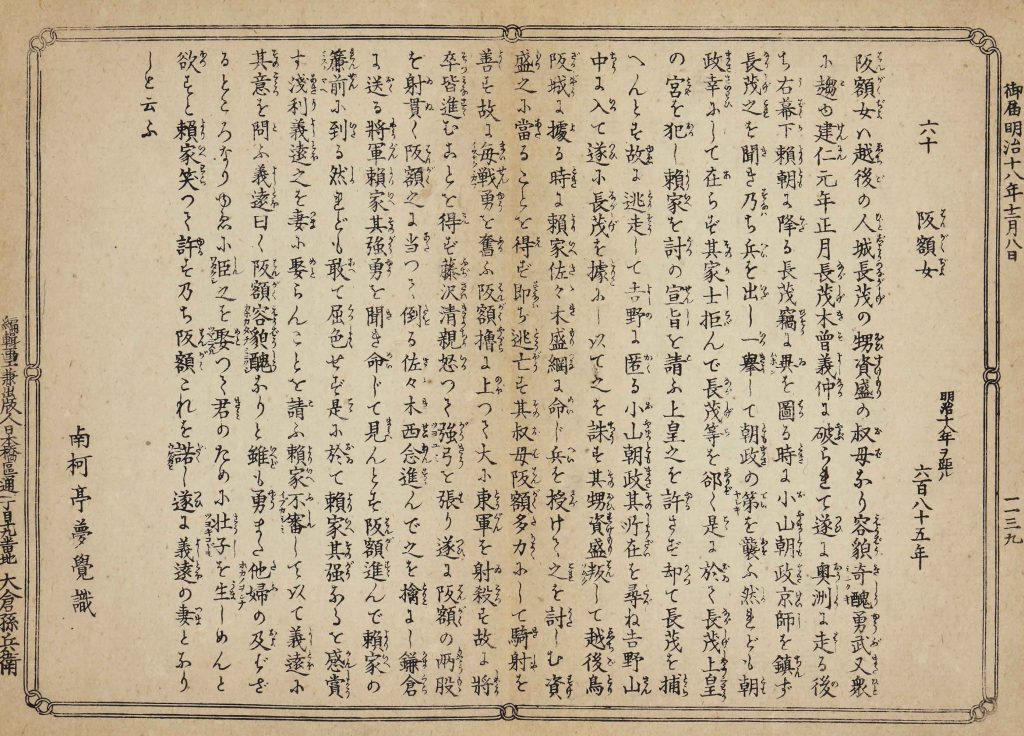 御届明治十八年十二月八日 一一三九
六十 阪額女 明治十八年ヲ距ル 六百八十五年
阪額女ハ越後の人城長茂の甥資盛の叔母なり容貌奇醜勇武又衆
に趨ゆ建仁元年正月長茂木曽義仲に破られて遂に奥洲に走る後
ち右幕下頼朝に降る長茂竊に異を圖る時に小山朝政京師を鎮ず
長茂之を聞き乃ち兵を出し一舉して朝政の第を襲ふ然れども朝
政幸にして在らず其家士拒んで長茂等を郤く是に於て長茂上皇
の宮を犯し頼家を討の宣旨を請ふ上皇之を許さず却て長茂を捕
へんとす故に逃走して吉野に匿る小山朝政其所在を尋ね吉野山
中に入て遂に長茂を擄にし以て之を誅す其甥資盛叛して越後鳥
阪城に據る時に頼家佐々木盛綱に命じ兵を授けて之を討しむ資
盛之に當ることを得ず即ち逃亡す其叔母阪額多力にして騎射を
善す故に毎戦勇を奮ふ阪額櫓に上つて大に東軍を射殺す故に將
卒皆進むことを得ず藤沢清親怒つて強弓を張り遂に阪額の两股
を射貫く阪額之に当つて倒る佐々木西念進んで之を擒にし鎌倉
に送る將軍頼家其強勇を聞き命じて見んとす阪額進んで頼家の
簾前に到る然れども敢て屈色せず是に於て頼家其强なるを感賞
す淺利義遠之を妻に娶らんことを請ふ頼家不審して以て義遠に
其意を問ふ義遠曰く阪額容貌醜なりと雖も勇また他婦の及ばざ
るところなりゆゑに臣之を娶つて君のために壮子を生しめんと
欲すと頼家笑つて許す乃ち阪額これを諾し遂に義遠の妻となり
しと云ふ
南柯亭夢覺識
編輯画工兼出版人日本橋區通一丁目九番地 大倉孫兵衛